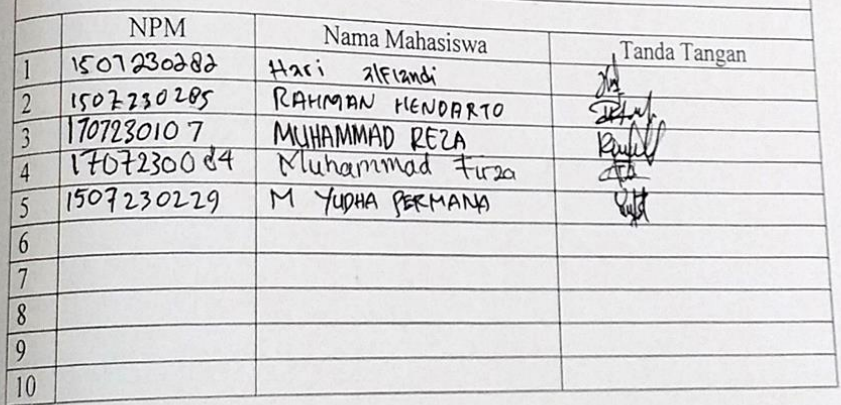 NPM Nama Mahasiswa Tanda Tangan
1 1507230282 Hari alflandi
2 1507230285 RAHMAN HENDARTO
3 1707230107 MUHAMMAD REZA
4 1707230084 Muhammad Firza
5 1507230229 M YUDHA PERMANA
6
7
8
9
10